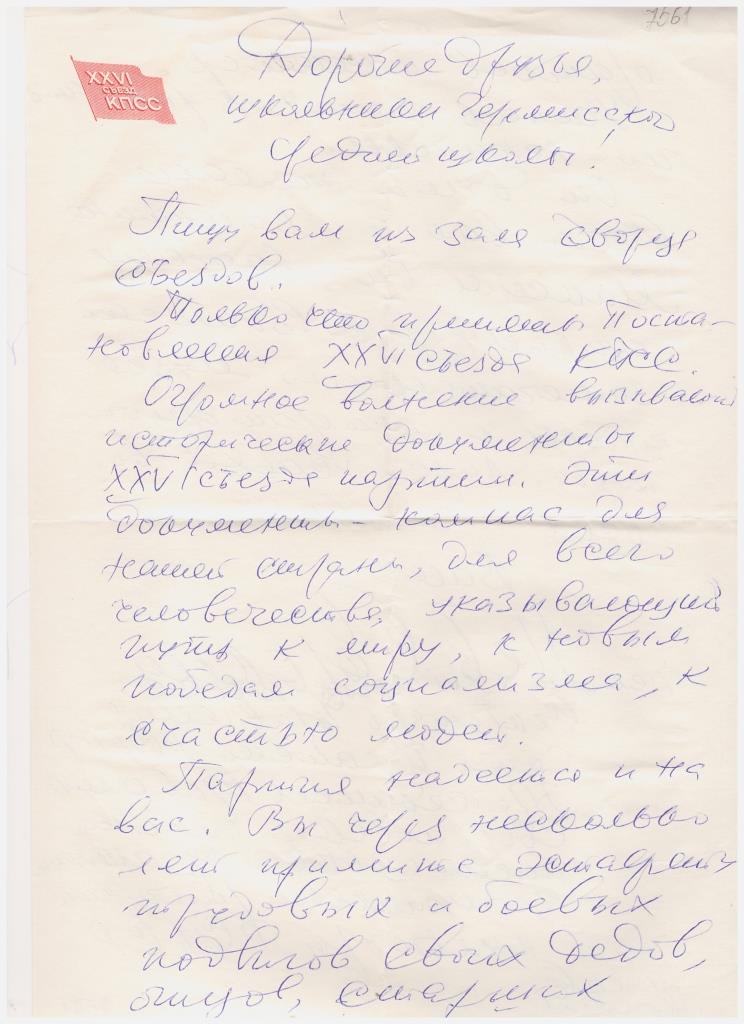 7561
XXVI
СЪЕЗД
КПСС
Дорогие друзья,
школьники
средней школы!
Пишу вам из зала Дворца
съездов.
Только что приняты Поста-
новления XXVI съезда КПСС.
Огромное волнение вызывают
исторические документы
XXVI съезда партии. Эти
документы – компас для
нашей страны, для всего
человечества, указывающий
путь к миру, к новым
победам социализма, к
счастью людей.
Партия надеется и на
вас. Вы через несколько
лет примите эстафету
трудовых и боевых
подвигов своих дедов,
отцов, старших